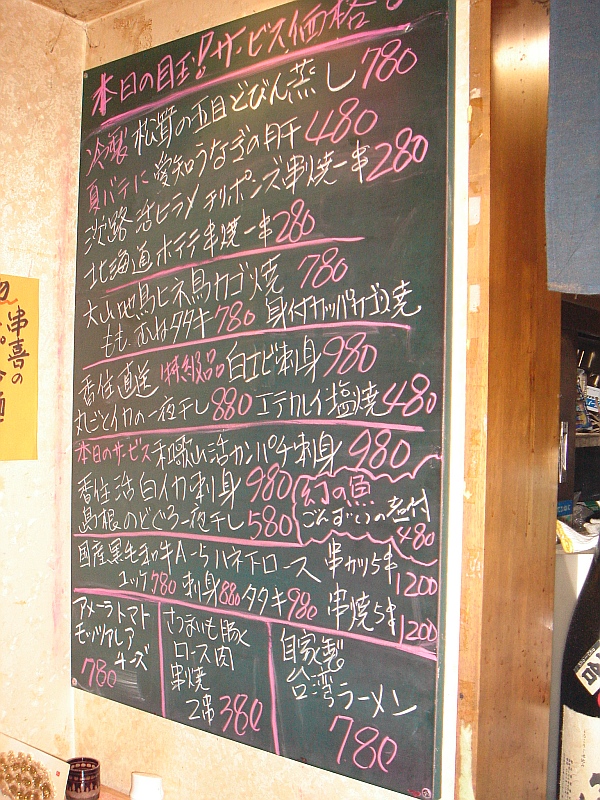 本日の目玉!サービス価格。
冷製 松茸の五目どびん蒸し 780
夏バテに 愛知うなぎの肝干 480
淡路 活ヒラメ チリポンズ串焼一串280
北海道 ホテテ串焼一串280
大山地鳥ヒネ鳥カゴ焼 780
もも、むねタタキ780 身付カッパカゴ焼
香住直送 特級品 白エビ刺身980
丸ごとイカの一夜干し 880 エテカレイ塩焼480
本日のサービス 和歌山活カンパチ刺身 980
香住活白イカ刺身 980
島根のどぐろ一夜干し580
幻の魚
ごんずいの煮付
480
国産黒毛和牛A-5ハネシタロース
ユッケ780 刺身880 タタキ980
串カツ5本
1200
串焼5本
1200
アメーラトマト
モッツァレア
チーズ
780
さつまいも豚
ロース肉
串焼
2串 380
自家製
台湾ラーメン
780
串喜の